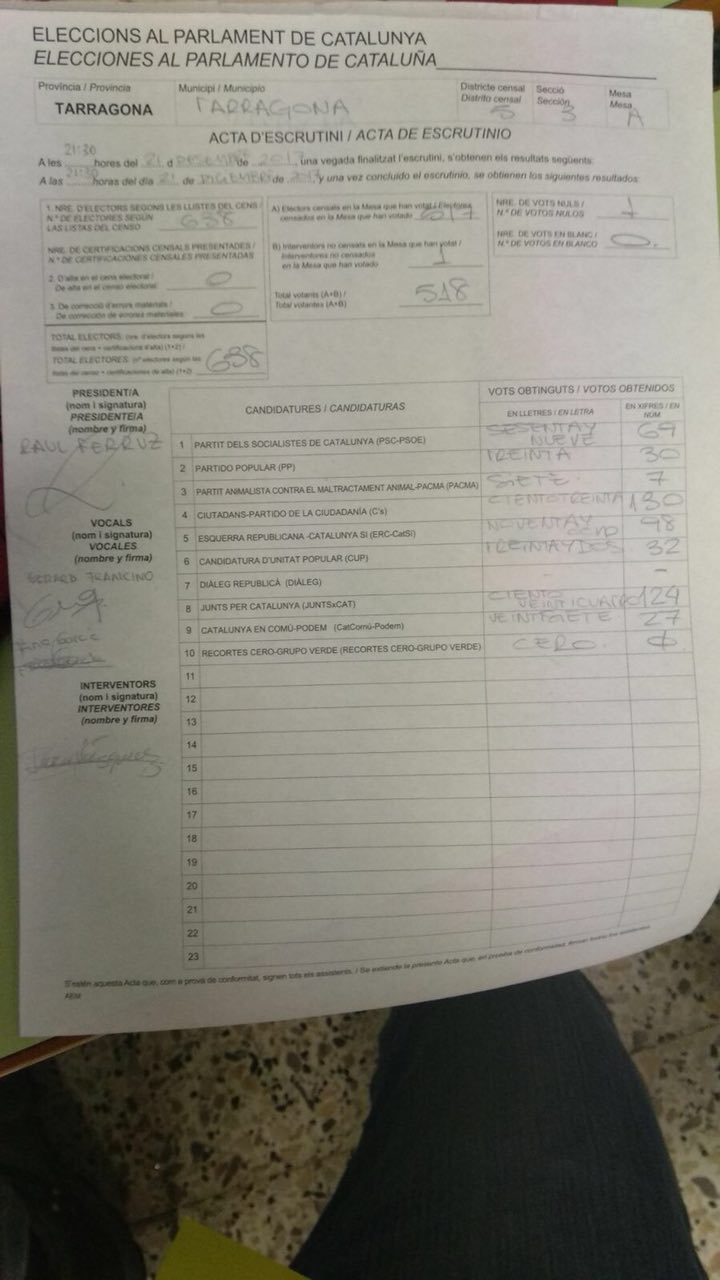 ELECCIONS AL PARLAMENT DE CATALUNYA
ELECCIONES AL PARLAMENTO DE CATALUÑA
Província / Provincia
TARRAGONA
Municipi / Municipio
TARRAGONA
Districte censal
Distrito censal
5
Secció
Sección
3
Mesa
Mesa
A
ACTA D'ESCRUTINI / ACTA DE ESCRUTINIO
A les 21:30 hores del 21 d DESEMBRE de 2017, una vegada finalitzat l'escrutini, s'obtenen els resultats següents:
A las 21:30 horas del día 21 de DICIEMBRE de 2017 y una vez concluido el escrutinio, se obtienen los siguientes resultados:
1. NRE. D'ELECTORS SEGONS LES LLISTES DEL CENS /
N.º DE ELECTORES SEGÚN
LAS LISTAS DEL CENSO
638
NRE. DE CERTIFICACIONS CENSALS PRESENTADES /
N.º DE CERTIFICACIONES CENSALES PRESENTADAS
2. D'alta en el cens electoral /
De alta en el censo electoral
0
3. De correcció d'errors materials /
De corrección de errores materiales
0
TOTAL ELECTORS: (nre. d'electors segons les
llistes del cens + certificacions d'alta) (1+2) /
TOTAL ELECTORES: (nº electores según las
listas del censo + certificaciones de alta) (1+2)
638
A) Electors censats en la Mesa que han votat / Electores
censados en la Mesa que han votado
517
B) Interventors no censats en la Mesa que han votat /
Interventores no censados
en la Mesa que han votado
1
Total votants (A+B) /
Total votantes (A+B)
518
NRE. DE VOTS NULS /
N.º DE VOTOS NULOS
1
NRE. DE VOTS EN BLANC /
N.º DE VOTOS EN BLANCO
0.
PRESIDENT/A
(nom i signatura)
PRESIDENTE/A
(nombre y firma)
RAUL FERRUZ
VOCALS
(nom i signatura)
VOCALES
(nombre y firma)
GERARD
INTERVENTORS
(nom i signatura)
INTERVENTORES
(nombre y firma)
CANDIDATURES / CANDIDATURAS
VOTS OBTINGUTS / VOTOS OBTENIDOS
EN LLETRES / EN LETRA
EN XIFRES / EN NÚM.
1 PARTIT DELS SOCIALISTES DE CATALUNYA (PSC-PSOE) SESENTAY NUEVE 69
2 PARTIDO POPULAR (PP) TREINTA 30
3 PARTIT ANIMALISTA CONTRA EL MALTRACTAMENT ANIMAL-PACMA (PACMA) SIETE. 7
4 CIUTADANS-PARTIDO DE LA CIUDADANÍA (C's) CIENTO TREINTA 130
5 ESQUERRA REPUBLICANA -CATALUNYA SI (ERC-CatSí) NOVENTAY 98
6 CANDIDATURA D'UNITAT POPULAR (CUP) TREINTAYDOS 32
7 DIÀLEG REPUBLICÀ (DIÀLEG) - -
8 JUNTS PER CATALUNYA (JUNTSxCAT) CIENTO VEINTICUATRO 124
9 CATALUNYA EN COMÚ-PODEM (CatComú-Podem) VEINTISIETE. 27
10 RECORTES CERO-GRUPO VERDE (RECORTES CERO-GRUPO VERDE) CERO. 0
11
12
13
14
15
16
17
18
19
20
21
22
23
S'estén aquesta Acta que, com a prova de conformitat, signen tots els assistents. / Se extiende la presente Acta que, en prueba de conformidad, firman todos los asistentes.